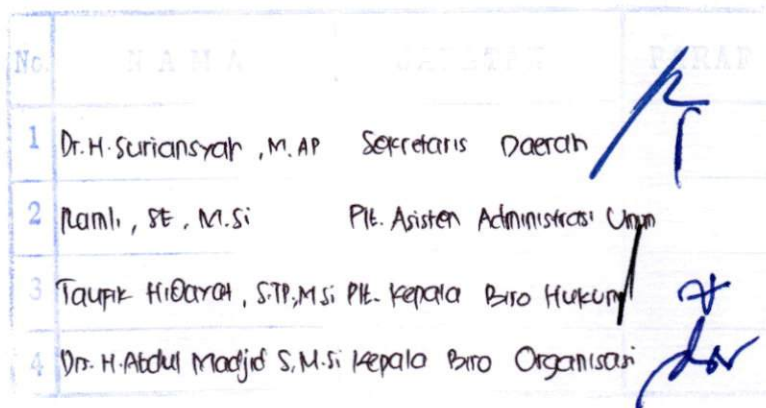 No. NAMA JABATAN PARAF
1 Dr. H. Suriansyah, M. AP Sekretaris Daerah
2 Ramli, SE, M.Si Plt. Asisten Administrasi Umum
3 Taufik Hidayat, S.TP, M.Si Plt. Kepala Biro Hukum
4 Drs. H. Abdul Madjid S, M.Si Kepala Biro Organisasi